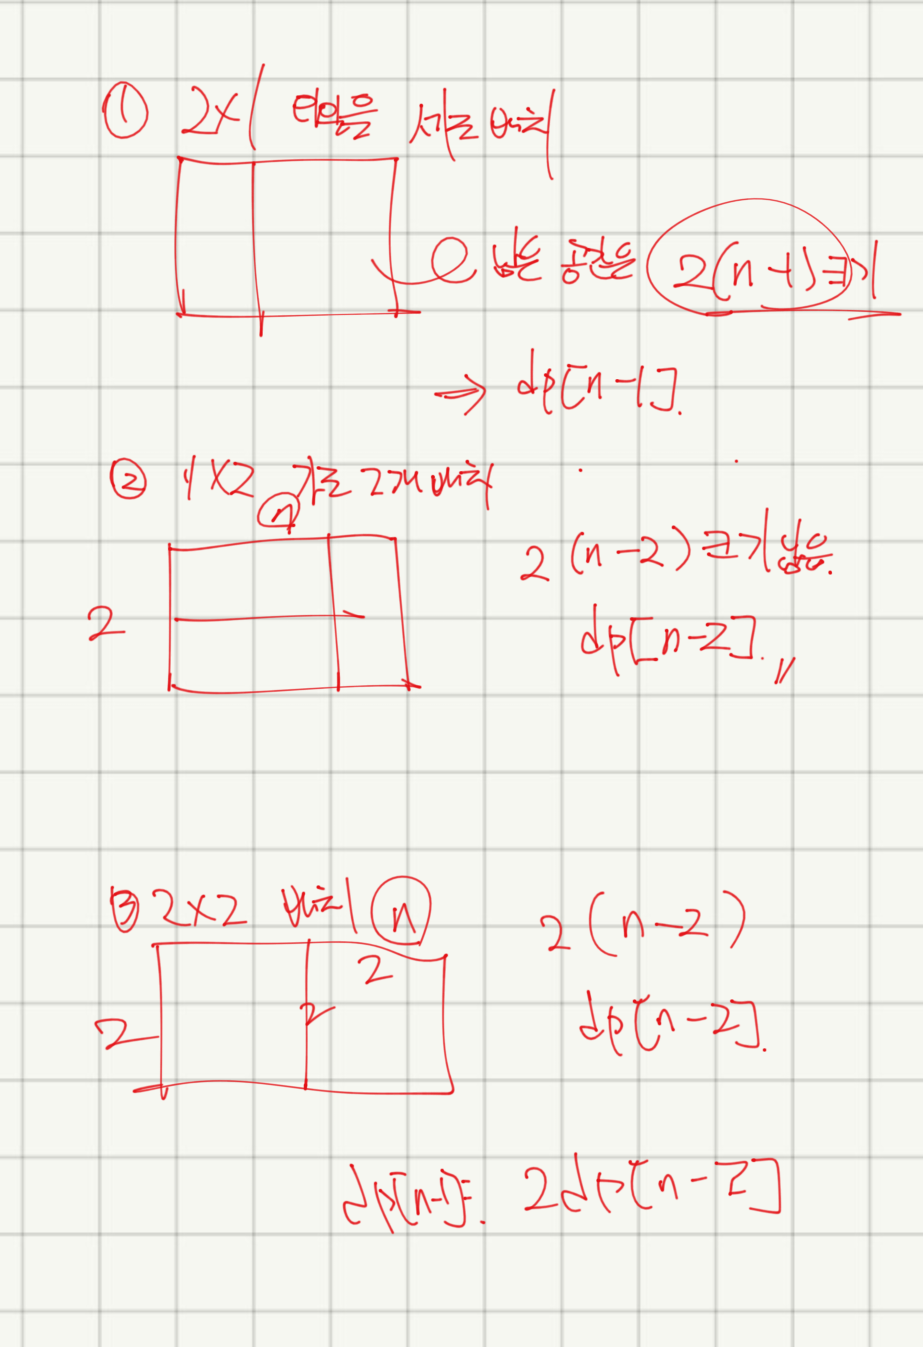 ① 2x1 타일을 세로 배치
남은 공간은 2(n-1)크기
⇒ dp[n-1].
② 1X2 가로 2개 배치
n
2
2 (n-2) 크기 남음.
dp[n-2].
③ 2x2 배치 n
2 (n-2)
2
2 2
dp[n-2].
dp[n-1]+. 2dp[n-2]